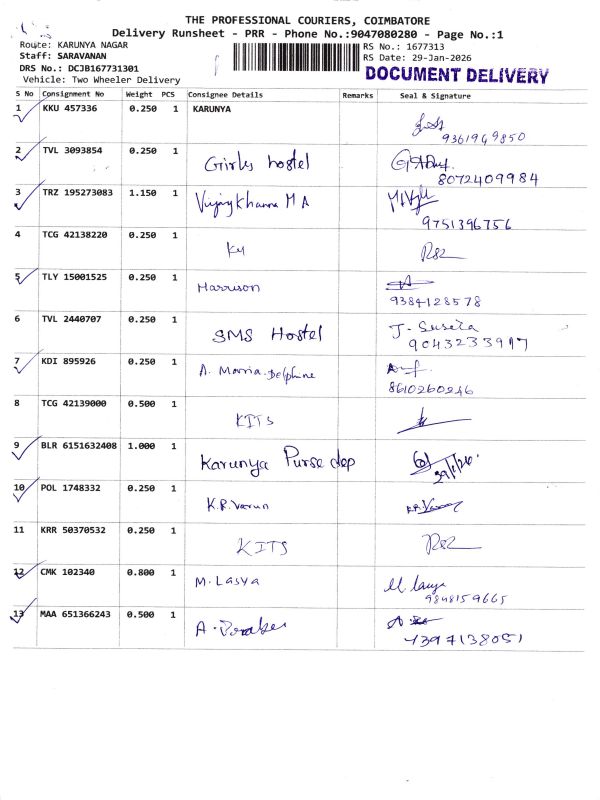 THE PROFESSIONAL COURIERS, COIMBATORE
Delivery Runsheet - PRR - Phone No.:9047080280 - Page No.:1
Route: KARUNYA NAGAR
RS No.: 1677313
Staff: SARAVANAN
RS Date: 29-Jan-2026
DRS No.: DCJB167731301
DOCUMENT DELIVERY
Vehicle: Two Wheeler Delivery
S No Consignment No Weight PCS Consignee Details Remarks Seal & Signature
1 KKU 457336 0.250 1 KARUNYA
9361969850
2 TVL 3093854 0.250 1 Girls hostel
8072409984
3 TRZ 195273083 1.150 1 Vijay Khanna M A
9751396756
4 TCG 42138220 0.250 1
5 TLY 15001525 0.250 1 Harrison
9384128578
6 TVL 2440707 0.250 1 SMS Hostel J. Suseela
7 KDI 895926 0.250 1 A. Maria Delphine
8610260246
8 TCG 42139000 0.500 1 KITS
9 BLR 6151632408 1.000 1 Karunya Purse dep
29/1/26
10 POL 1748332 0.250 1 K.R. Varun
11 KRR 50370532 0.250 1 KITS
12 CMK 102340 0.800 1 M. Lasya
9848159665
13 MAA 651366243 0.500 1